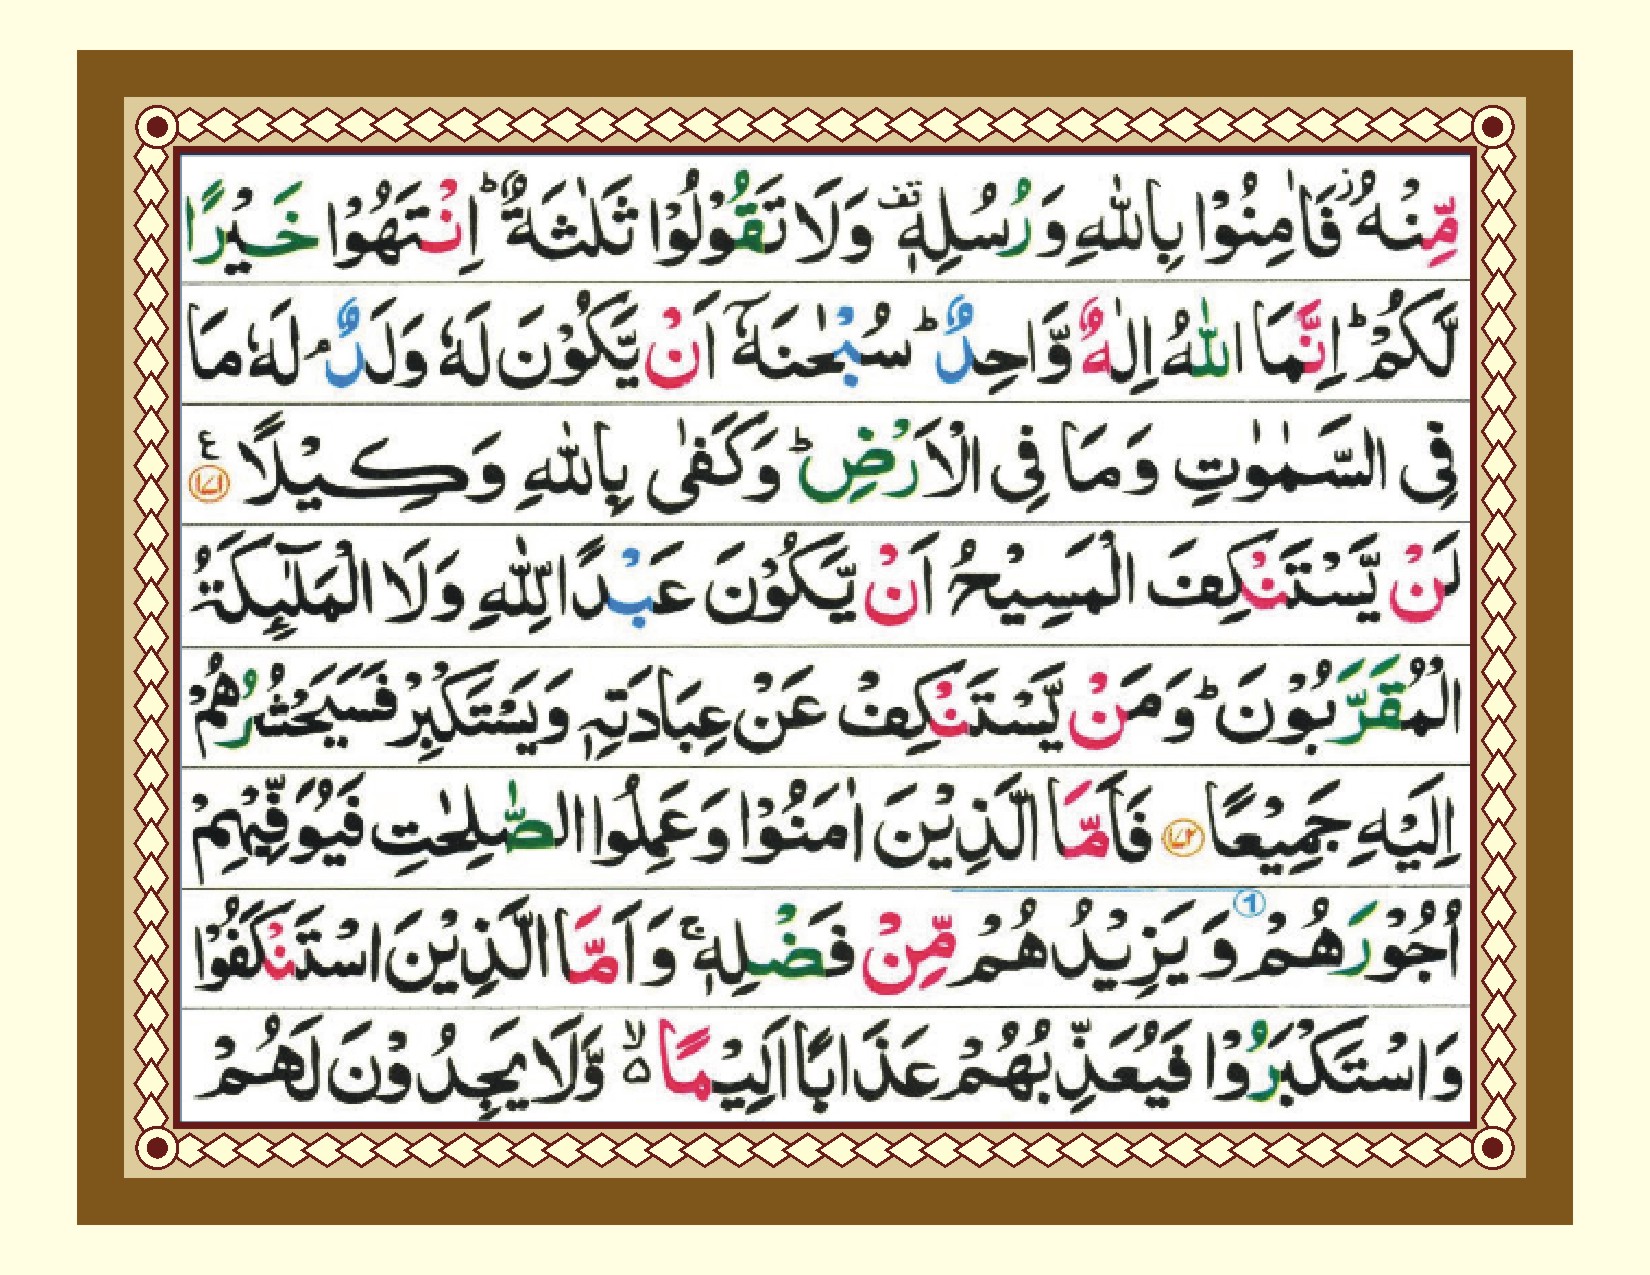 مِّنْهُ ؗ فَاٰمِنُوْا بِاللّٰهِ وَرُسُلِهٖ ۣ۫ وَلَا تَقُوْلُوْا ثَلٰثَةٌ ؕ اِنْتَهُوْا خَيْرًا
لَّكُمْ ؕ اِنَّمَا اللّٰهُ اِلٰهٌ وَّاحِدٌ ؕ سُبْحٰنَهٗۤ اَنْ يَّكُوْنَ لَهٗ وَلَدٌ ۘ لَهٗ مَا
فِى السَّمٰوٰتِ وَمَا فِى الْاَرْضِ ؕ وَكَفٰى بِاللّٰهِ وَكِيْلًا ع ۱۷۱
لَنْ يَّسْتَنْكِفَ الْمَسِيْحُ اَنْ يَّكُوْنَ عَبْدًا لِّلّٰهِ وَلَا الْمَلٰٓئِكَةُ
الْمُقَرَّبُوْنَ ؕ وَمَنْ يَّسْتَنْكِفْ عَنْ عِبَادَتِهٖ وَيَسْتَكْبِرْ فَسَيَحْشُرُهُمْ
اِلَيْهِ جَمِيْعًا ۱۷۲ فَاَمَّا الَّذِيْنَ اٰمَنُوْا وَعَمِلُوا الصّٰلِحٰتِ فَيُوَفِّيْهِمْ
اُجُوْرَهُمْ 1 وَيَزِيْدُهُمْ مِّنْ فَضْلِهٖ ۚ وَاَمَّا الَّذِيْنَ اسْتَنْكَفُوْا
وَاسْتَكْبَرُوْا فَيُعَذِّبُهُمْ عَذَابًا اَلِيْمًا ۙ۵ وَّلَا يَجِدُوْنَ لَهُمْ